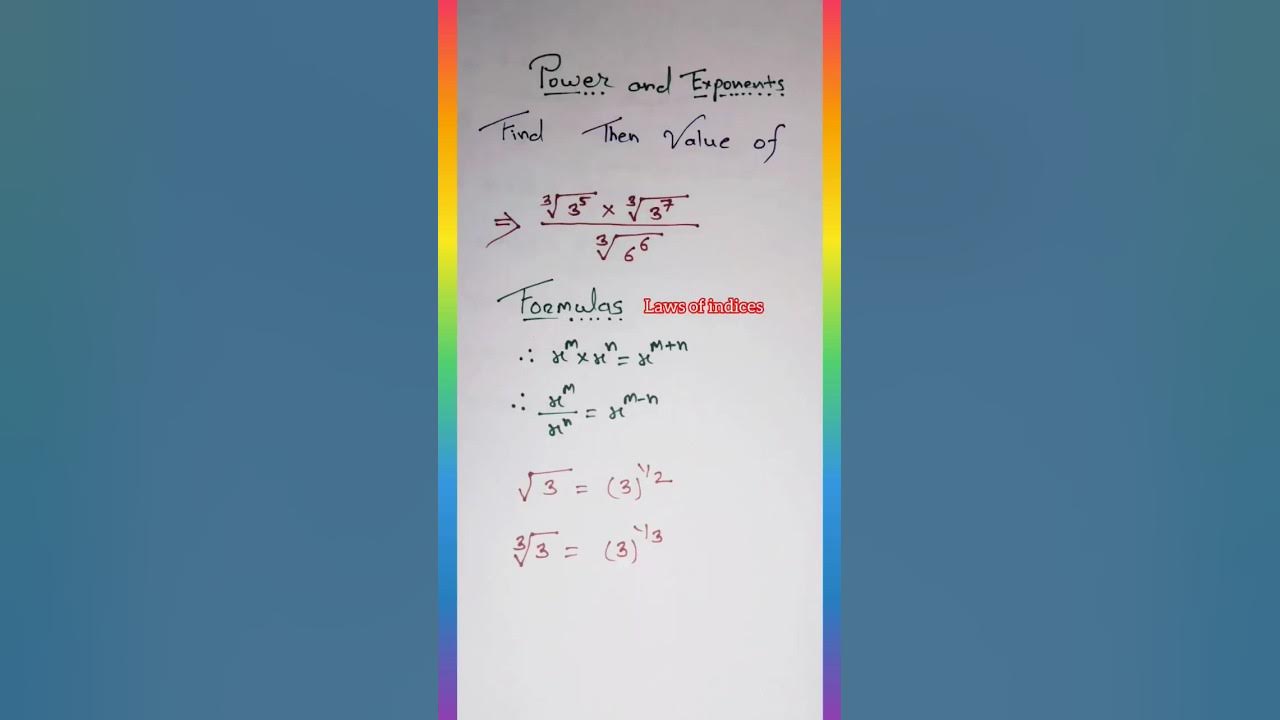 Power and Exponents
Find Then Value of
⇒ ∛(3⁵) × ∛(3⁷) / ∛(6⁶)
Formulas Laws of indices
∴ xᵐ × xⁿ = xᵐ⁺ⁿ
∴ xᵐ / xⁿ = xᵐ⁻ⁿ
√3 = (3)^1/2
∛3 = (3)^1/3